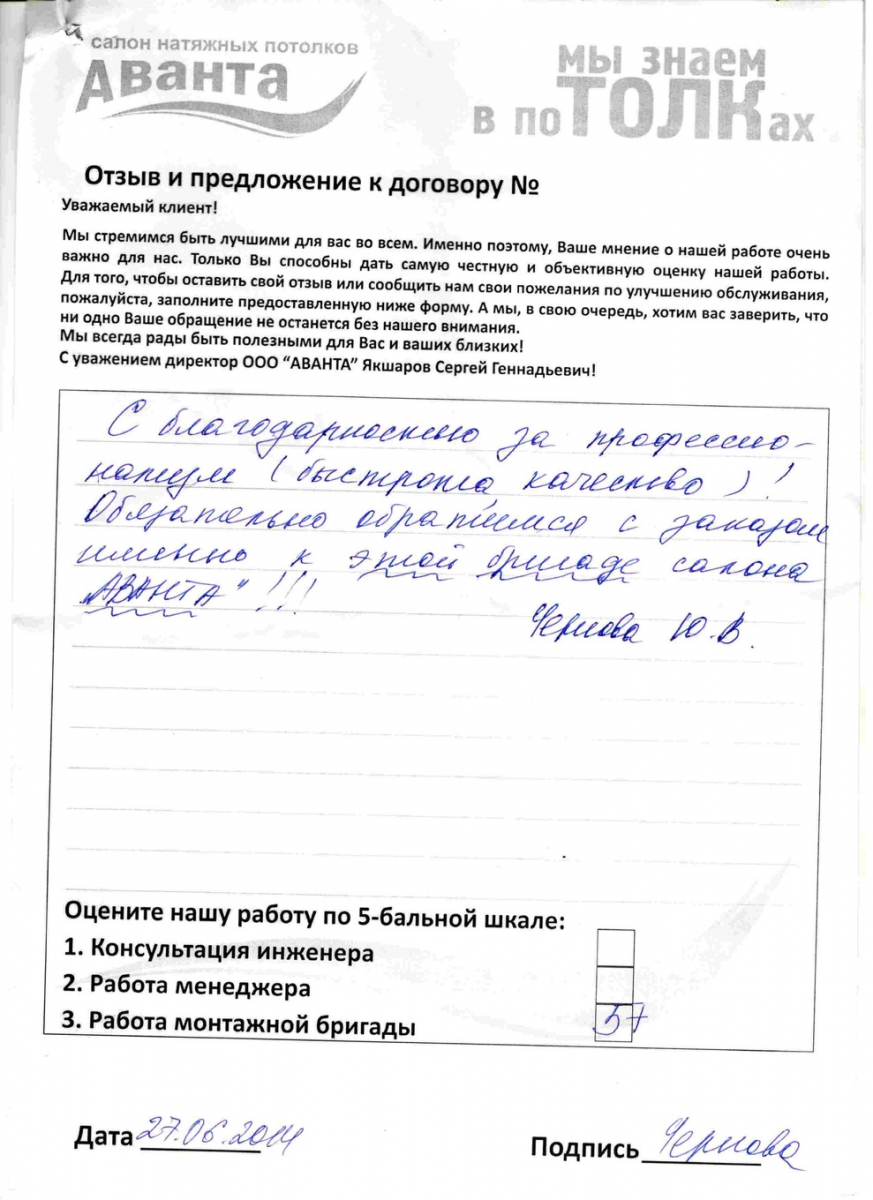 салон натяжных потолков
Аванта
мы знаем
в поТОЛКах
Отзыв и предложение к договору №
Уважаемый клиент!
Мы стремимся быть лучшими для вас во всем. Именно поэтому, Ваше мнение о нашей работе очень
важно для нас. Только Вы способны дать самую честную и объективную оценку нашей работы.
Для того, чтобы оставить свой отзыв или сообщить нам свои пожелания по улучшению обслуживания,
пожалуйста, заполните предоставленную ниже форму. А мы, в свою очередь, хотим вас заверить, что
ни одно Ваше обращение не останется без нашего внимания.
Мы всегда рады быть полезными для Вас и ваших близких!
С уважением директор ООО “АВАНТА” Якшаров Сергей Геннадьевич!
С благодарностью за профессио-
нализм (быстрота, качество)!
Обязательно обратимся с заказом
именно к этой бригаде салона
„АВАНТА" !!!
Чернова Ю.В.
Оцените нашу работу по 5-бальной шкале:
1. Консультация инженера
2. Работа менеджера
3. Работа монтажной бригады 5+
Дата 27.06.2014
Подпись Чернова